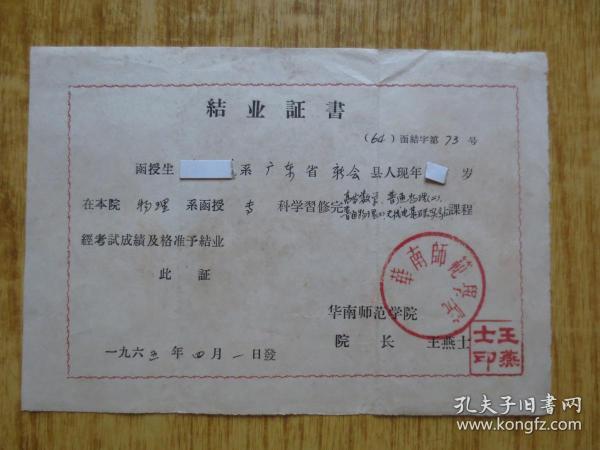 結业証書
(64)函結字第73号
函授生 系广东省新会县人现年 岁
在本院物理系函授专科学習修完高等数学、普通物理(一)、
普通物理(二)无线电基礎 課程
經考試成績及格准予結业
此証
華南師範學院
华南师范学院
院長 王燕士
王燕士印
一九六五年四月一日發
孔夫子旧书网
www.kongfz.com